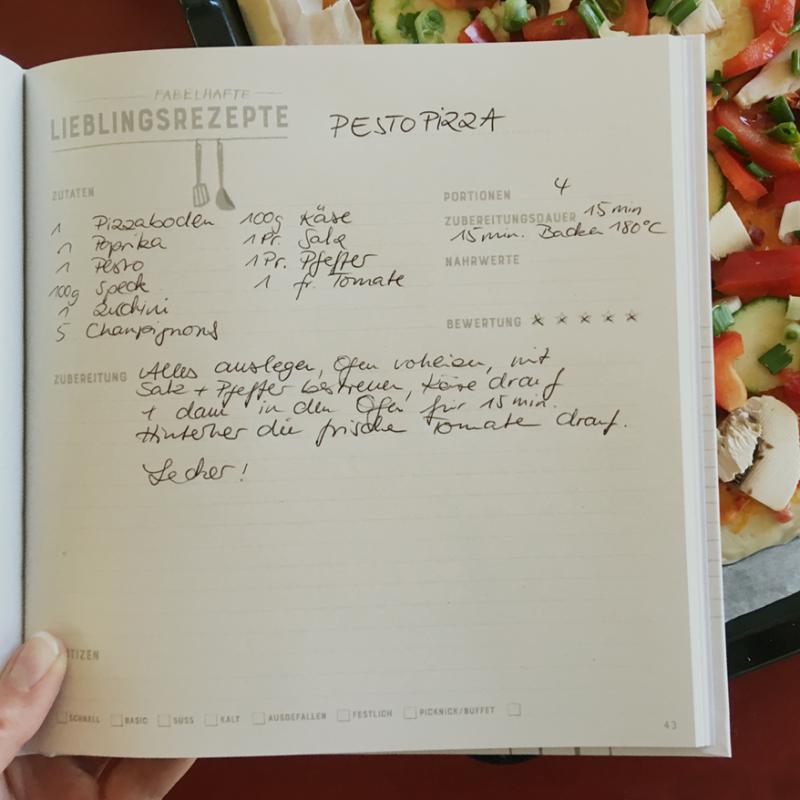 FABELHAFTE
LIEBLINGSREZEPTE
PESTO PIZZA
ZUTATEN
1 Pizzaboden
1 Paprika
1 Pesto
100g Speck
1 Zuchini
5 Champignons
100g Käse
1 Pr. Salz
1 Pr. Pfeffer
1 fr. Tomate
PORTIONEN 4
ZUBEREITUNGSDAUER 15 min
15 min. Backen 180°C
NÄHRWERTE
BEWERTUNG
ZUBEREITUNG Alles auslegen, Ofen voheizen, mit
Salz + Pfeffer bestreuen, Käse drauf
+ dann in den Ofen für 15 min.
Hinterher die frische Tomate drauf.
Lecker!
TIZEN
SCHNELL BASIC SÜSS KALT AUSGEFALLEN FESTLICH PICKNICK/BUFFET
43